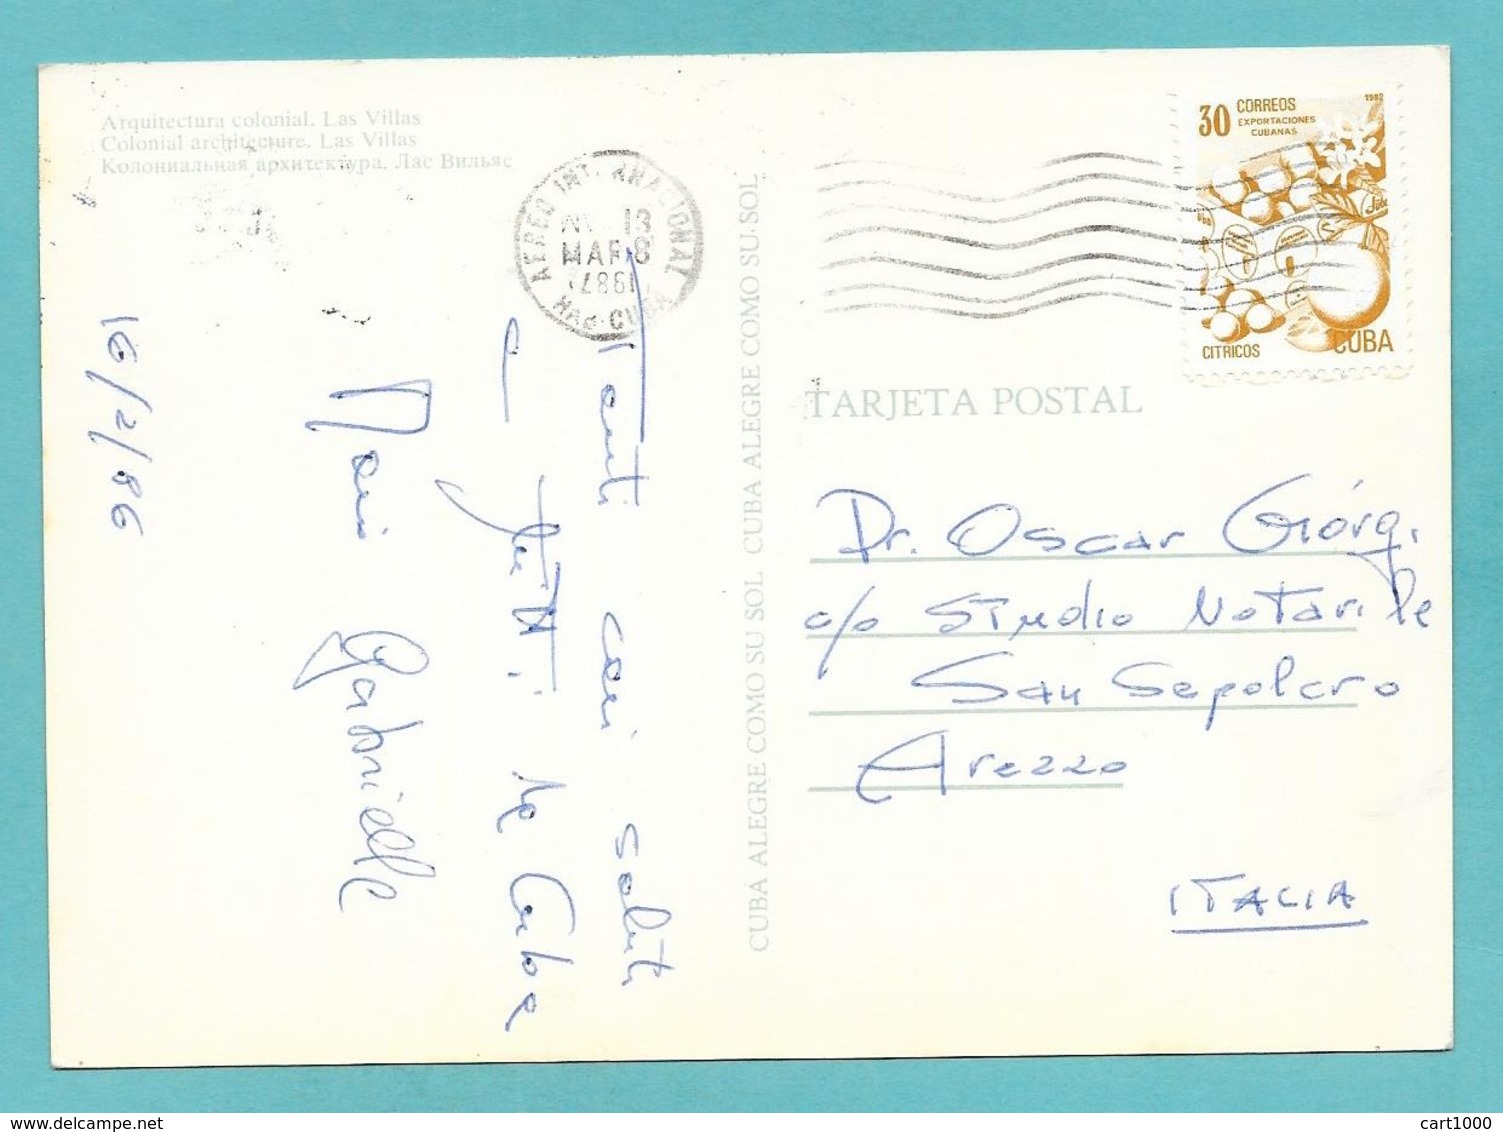 Arquitectura colonial. Las Villas
Colonial architecture. Las Villas
Колониальная архитектура. Лас Вильяс
16/2/86
Tanti cari saluti
a tutti da Cuba
Gabriella
AEREO INTERNACIONAL
13
MAR 8
1987
HAB. CUBA
CUBA ALEGRE COMO SU SOL CUBA ALEGRE COMO SU SOL
30 CORREOS
1982
EXPORTACIONES
CUBANAS
CITRICOS
CUBA
TARJETA POSTAL
Dr. Oscar Giorgi
c/o Studio Notarile
San Sepolcro
Arezzo
ITALIA
www.delcampe.net
cart1000